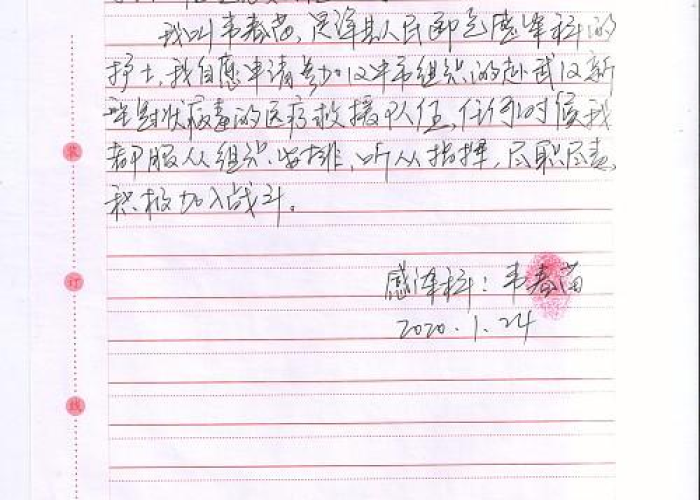 我叫韦春苗,是泽县人民卫生感染科的
护士,我自愿申请参加汉中市组织的赴武汉新
型冠状病毒的医疗救援队伍,任何时候我
都服从组织安排,听从指挥,尽职尽责,
积极加入战斗。
感染科:韦春苗
2020.1.24
装
订
线